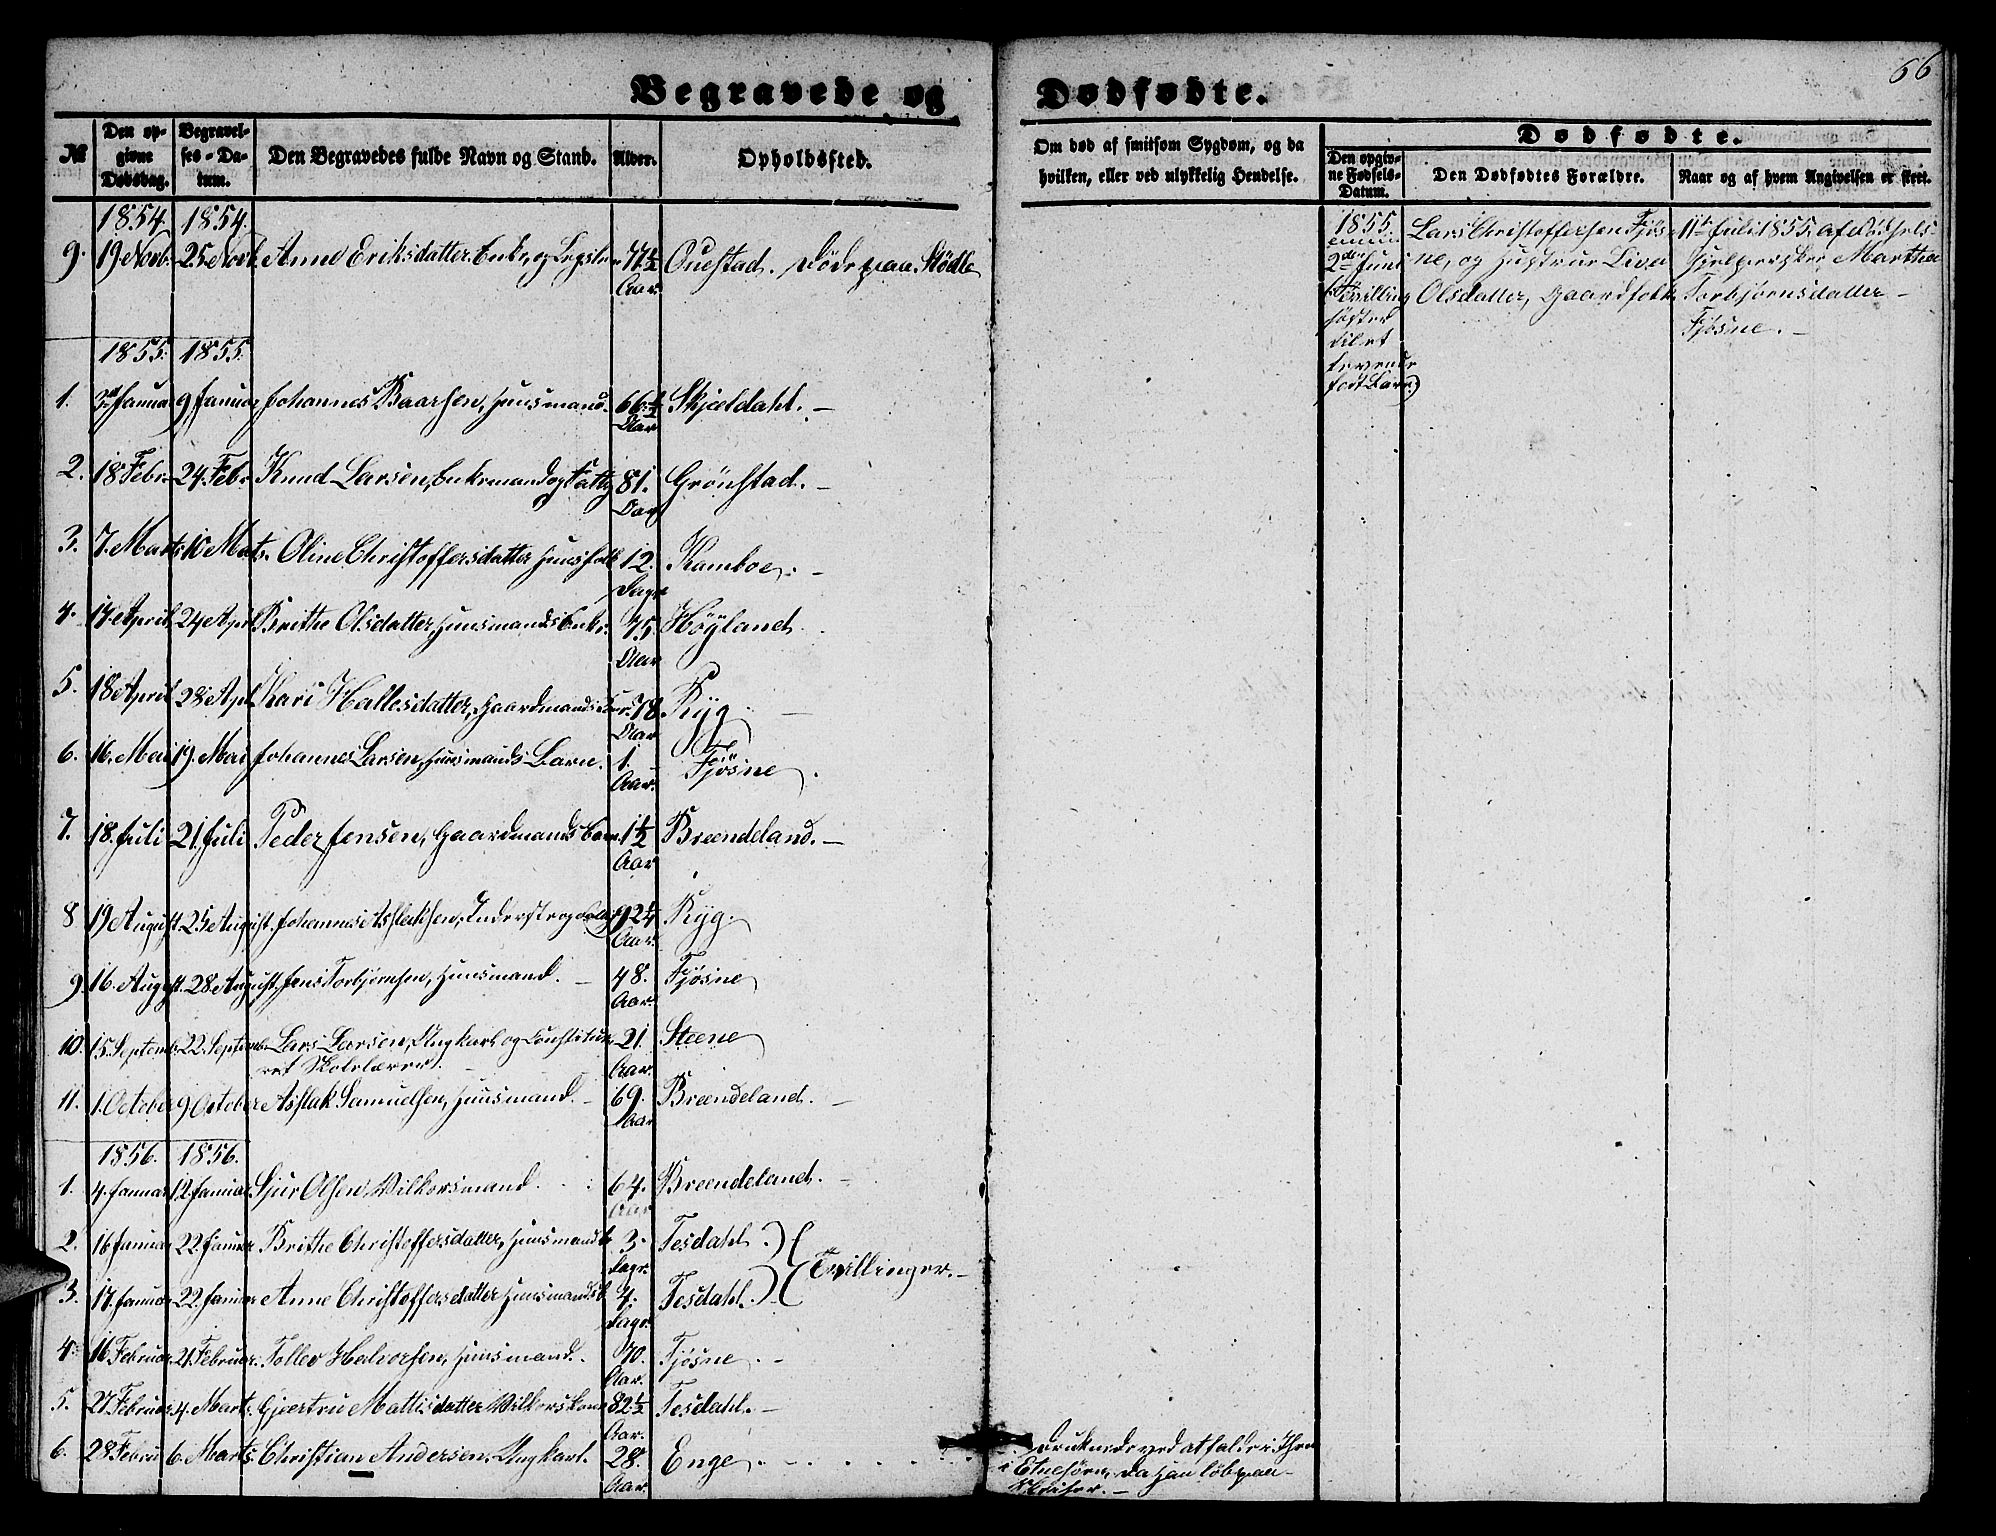 66
Begravede og Dødfødte.
№ Den opgivne Dødsdag. Begravelses-Datum. Den Begravedes fulde Navn og Stand. Alder. Opholdssted. Om død af smitsom Sygdom, og da hvilken, eller ved ulykkelig Hendelse. Dødfødte. Den opgivne Fødsels-Datum. Den Dødfødtes Forældre. Naar og af hvem Angivelsen er skeet.
1854. 1854.
9. 19 Novb. 25 Novb. Anne Eriksdatter Enke, og Legsl. 77 1/2 Aar. Ouestad. Døde paa Stödle
1855. 1855.
1. 3 Januar 9 Januar Johannes Baarsen, Huusmand. 66 1/2 Aar Skjeldahl. –
2. 18 Febr. 24 Febr. Knud Larsen, Enkemand og Fattig 81. Aar Grönstad. –
3. 7. Marts 10 Marts. Oline Christoffersdatter Huusfolk 12. Dage Kamboe. –
4. 17 April. 24 Apr. Brithe Olsdatter, Huusmands Enke. 75. Aar Höyland.
5. 18 April 28 Apl. Kari Hallesdatter, Gaardmands 78. Aar Ryg. –
6. 16. Mai 19. Mai Johannes Larsen, Huusmands Barn. 1. Aar. Fjösne.
7. 18. Juli 21. Juli Peder Jensen, Gaardmands Barn. 1 1/2 Aar Breendeland. –
8 19 August. 25 August. Johannes Aslleksen, Inderst og 92 1/4 Aar. Ryg.
9. 16. August. 28 August. Jens Torbjørnsen, Huusmand. – 48. Aar. Fjösne
10. 15. Septemb. 22. Septemb. Lars Larsen, Ungkarl og Constitueret Skolelærer. – 21. Aar. Steene
11. 1. October 9 October Aslak Samuelsen, Huusmand. – 69. Aar Breendeland. –
1856. 1856.
1. 4. Januar 12 Januar Sjur Olsen, Vilkorsmand. 64. Aar Breendeland. –
2. 16 Januar 22. Januar Brithe Christoffersdatter, Huusmands b. 3. Dage. Tesdahl.
Tvillinger. –
3. 17. Januar 22. Januar Anne Christoffersdatter Huusmands b. 4. Dage. Tesdahl.
4. 16 Februar. 21. Februar. Tollev Halvorsen, Huusmand. 70. Aar. Fjösne. –
5. 27 Februar. 4. Marts. Gjertru Mattisdatter Vilkorskone 82 1/2 Aar. Tesdahl. –
6. 28. Februar 6. Marts. Christian Andersen, Ungkarl. 28. Aar. Enge.
Druknede ved at falde i
i Etnesøen, da han löb paa
1855.
2den Juni
(Tvilling
söster
til et
levende
født Barn)
Lars Christoffersen Fjösne, og Hustrue Liva
Olsdatter, Gaardfolk.
11te Juli 1855. af Födsels-
hjelperske Martha
Torbjørnsdatter –
Fjösne. –